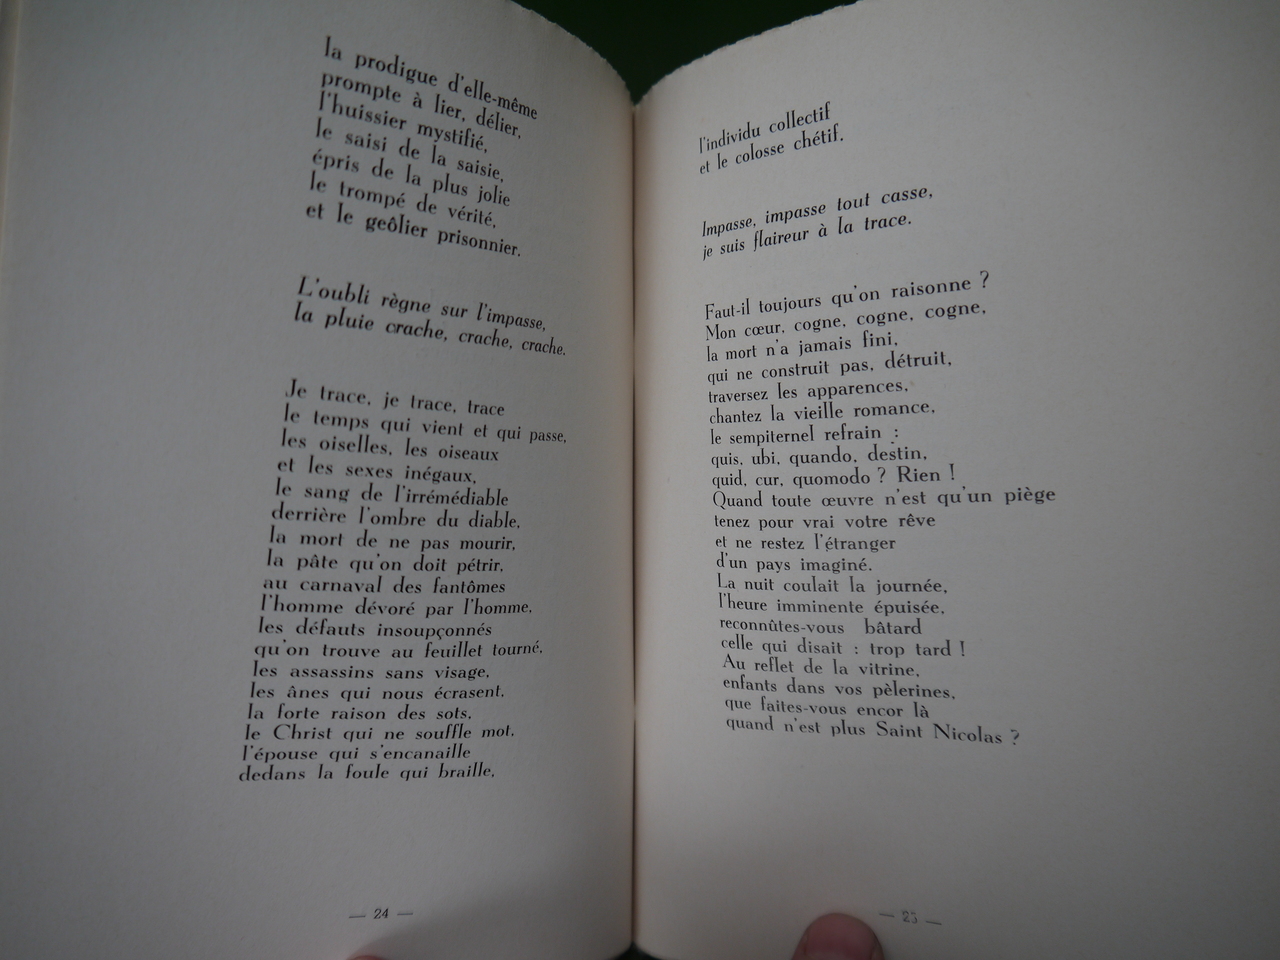 la prodigue d'elle-même
prompte à lier, délier,
l'huissier mystifié,
le saisi de la saisie,
épris de la plus jolie
le trompé de vérité,
et le geôlier prisonnier.
L'oubli règne sur l'impasse,
la pluie crache, crache, crache.
Je trace, je trace, trace
le temps qui vient et qui passe,
les oiselles, les oiseaux
et les sexes inégaux,
le sang de l'irrémédiable
derrière l'ombre du diable,
la mort de ne pas mourir,
la pâte qu'on doit pétrir,
au carnaval des fantômes
l'homme dévoré par l'homme,
les défauts insoupçonnés
qu'on trouve au feuillet tourné,
les assassins sans visage,
les ânes qui nous écrasent,
la forte raison des sots,
le Christ qui ne souffle mot,
l'épouse qui s'encanaille
dedans la foule qui braille,
— 24 —
l'individu collectif
et le colosse chétif.
Impasse, impasse tout casse,
je suis flaireur à la trace.
Faut-il toujours qu'on raisonne ?
Mon cœur, cogne, cogne, cogne,
la mort n'a jamais fini,
qui ne construit pas, détruit,
traversez les apparences,
chantez la vieille romance,
le sempiternel refrain :
quis, ubi, quando, destin,
quid, cur, quomodo ? Rien !
Quand toute œuvre n'est qu'un piège
tenez pour vrai votre rêve
et ne restez l'étranger
d'un pays imaginé.
La nuit coulait la journée,
l'heure imminente épuisée,
reconnûtes-vous bâtard
celle qui disait : trop tard !
Au reflet de la vitrine,
enfants dans vos pèlerines,
que faites-vous encor là
quand n'est plus Saint Nicolas ?
— 25 —